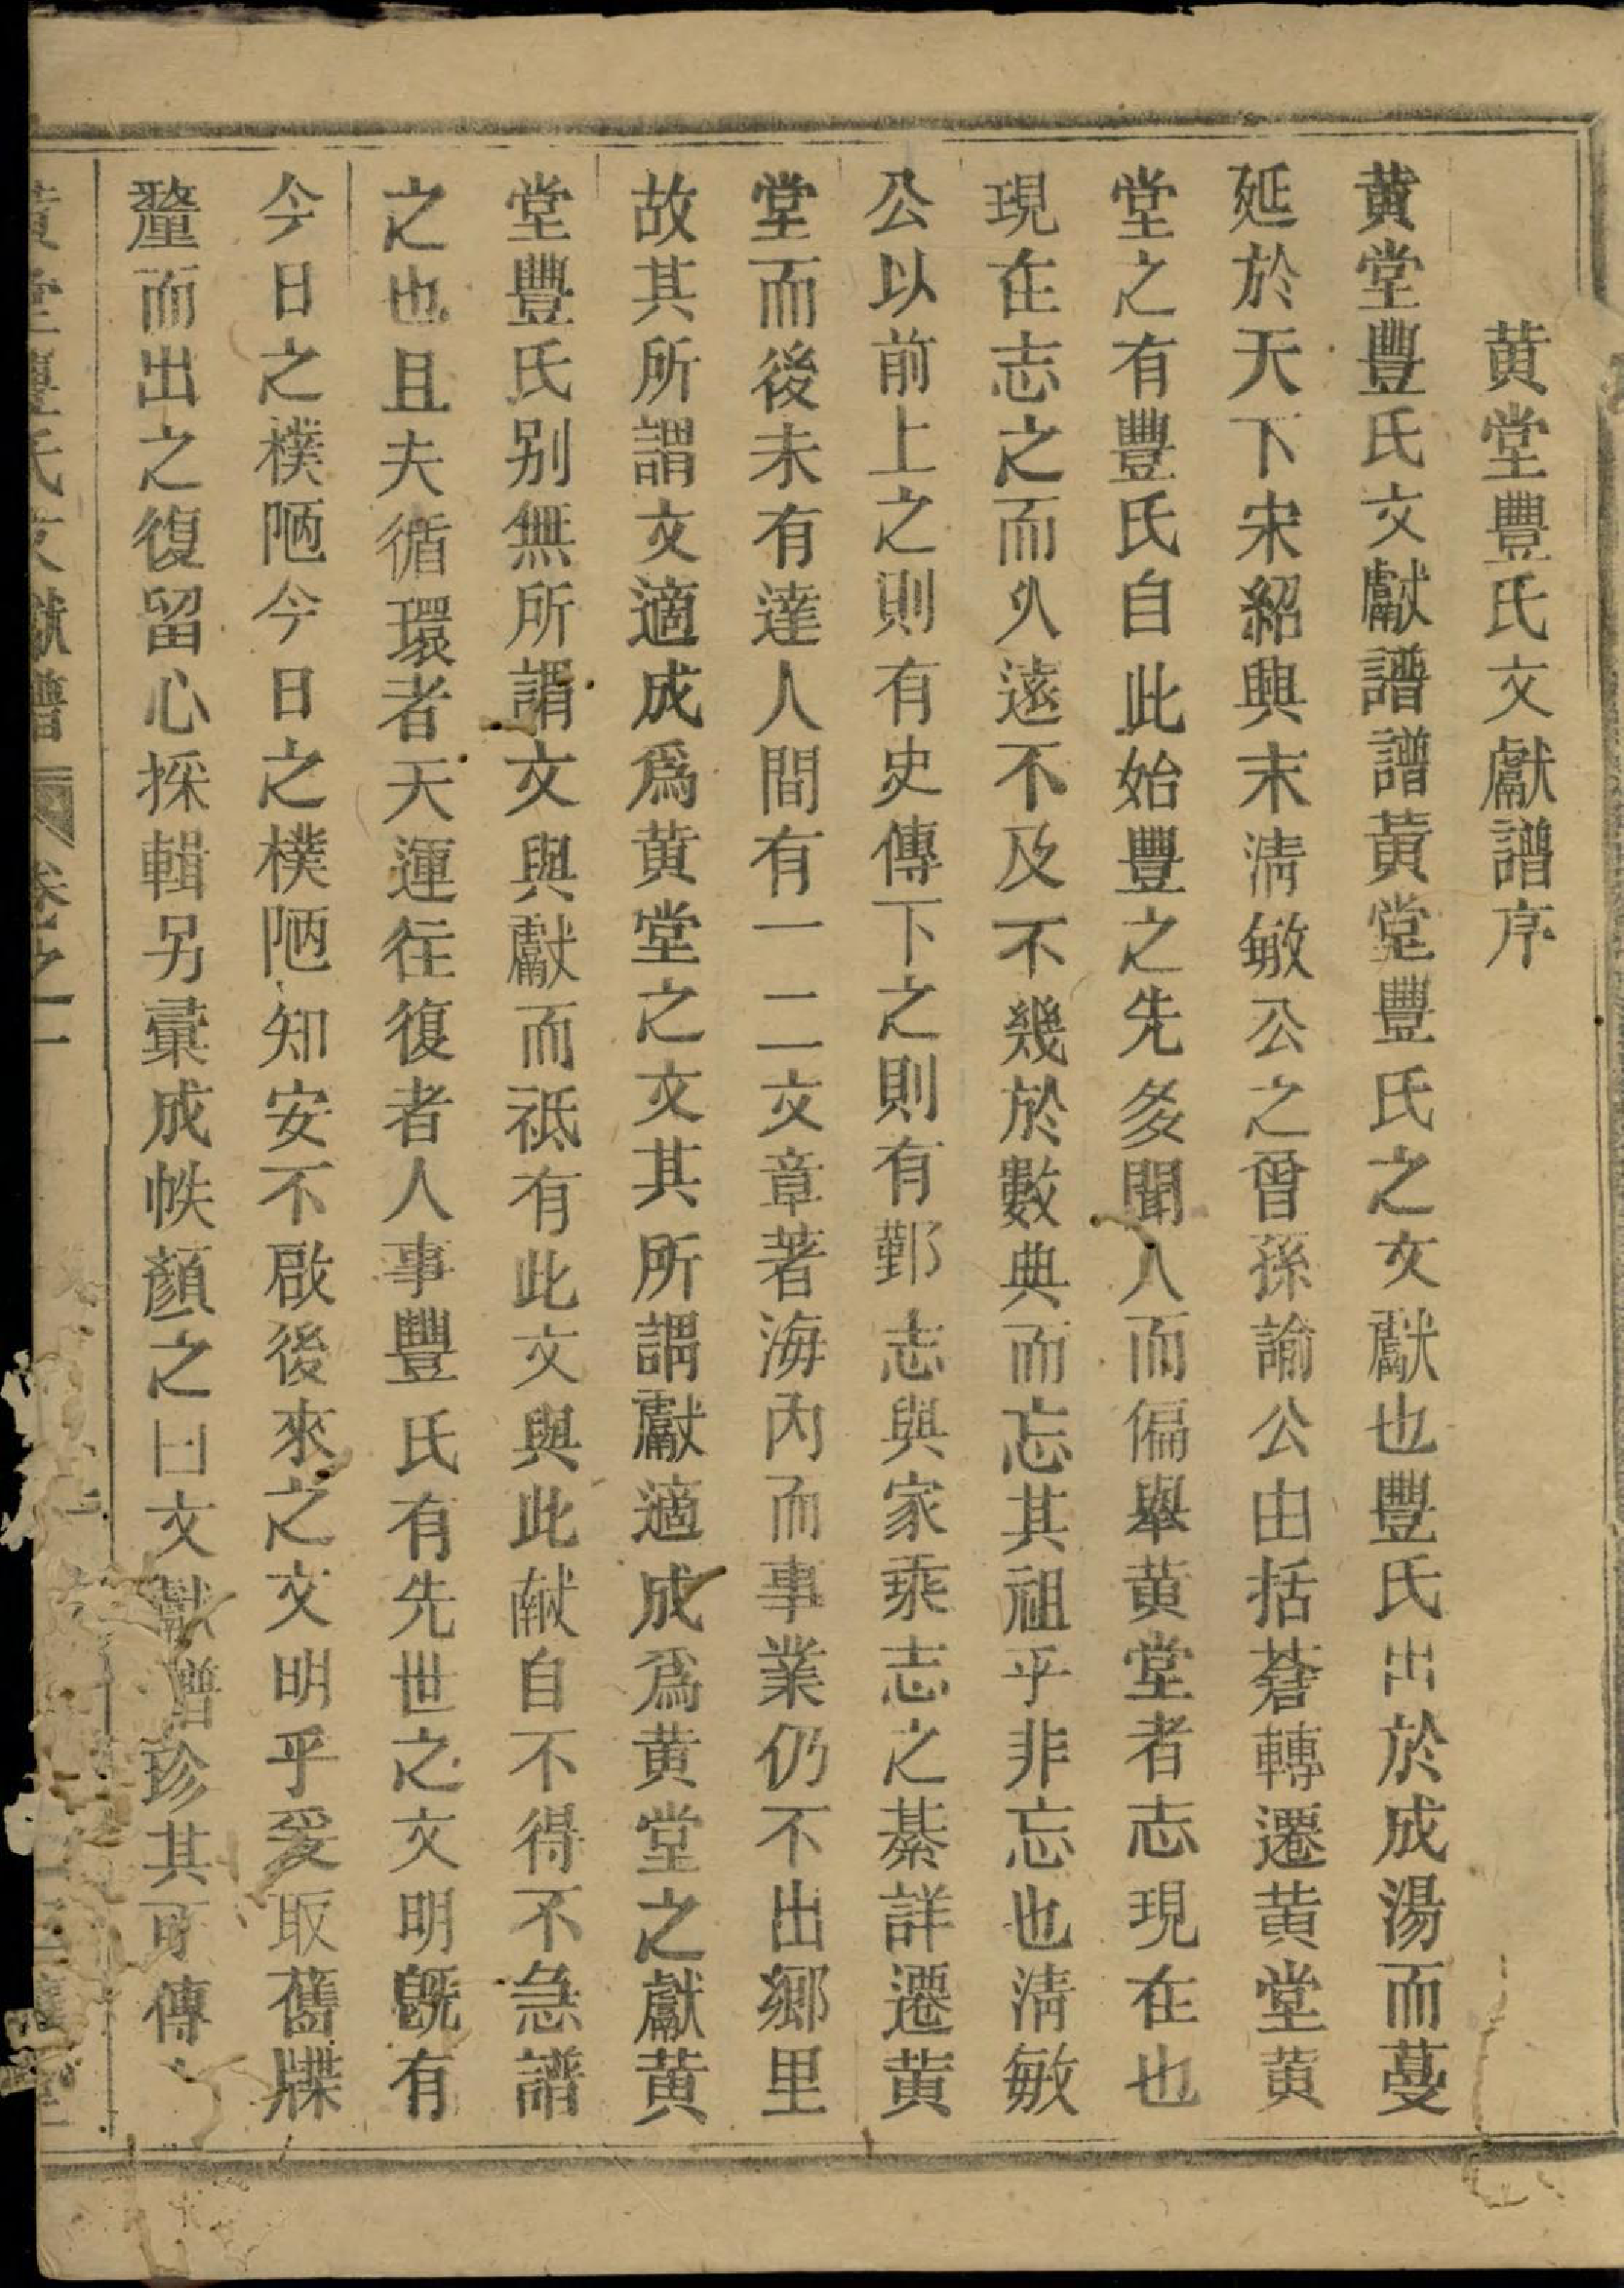 黄堂豐氏文獻譜序
黄堂豐氏文獻譜譜黄堂豐氏之文獻也豐氏出於成湯而蔓
延於天下宋紹興末清敏公之曾孫諭公由括蒼轉遷黄堂黄
堂之有豐氏自此始豐之先多聞人而偏舉黄堂者志現在也
現在志之而久遠不及不幾於數典而忘其祖乎非忘也清敏
公以前上之則有史傳下之則有鄞志與家乘志之綦詳遷黄
堂而後未有達人間有一二文章著海內而事業仍不出鄉里
故其所謂文適成爲黄堂之文其所謂獻適成爲黄堂之獻黄
堂豐氏别無所謂文與獻而祗有此文與此献自不得不急譜
之也且夫循環者天運往復者人事豐氏有先世之文明旣有
今日之樸陋今日之樸陋知安不啟後來之文明乎爰取舊牒
釐而出之復留心採輯另彙成帙顏之曰文獻譜珍其可傳
黄堂豐氏文獻譜 卷之一